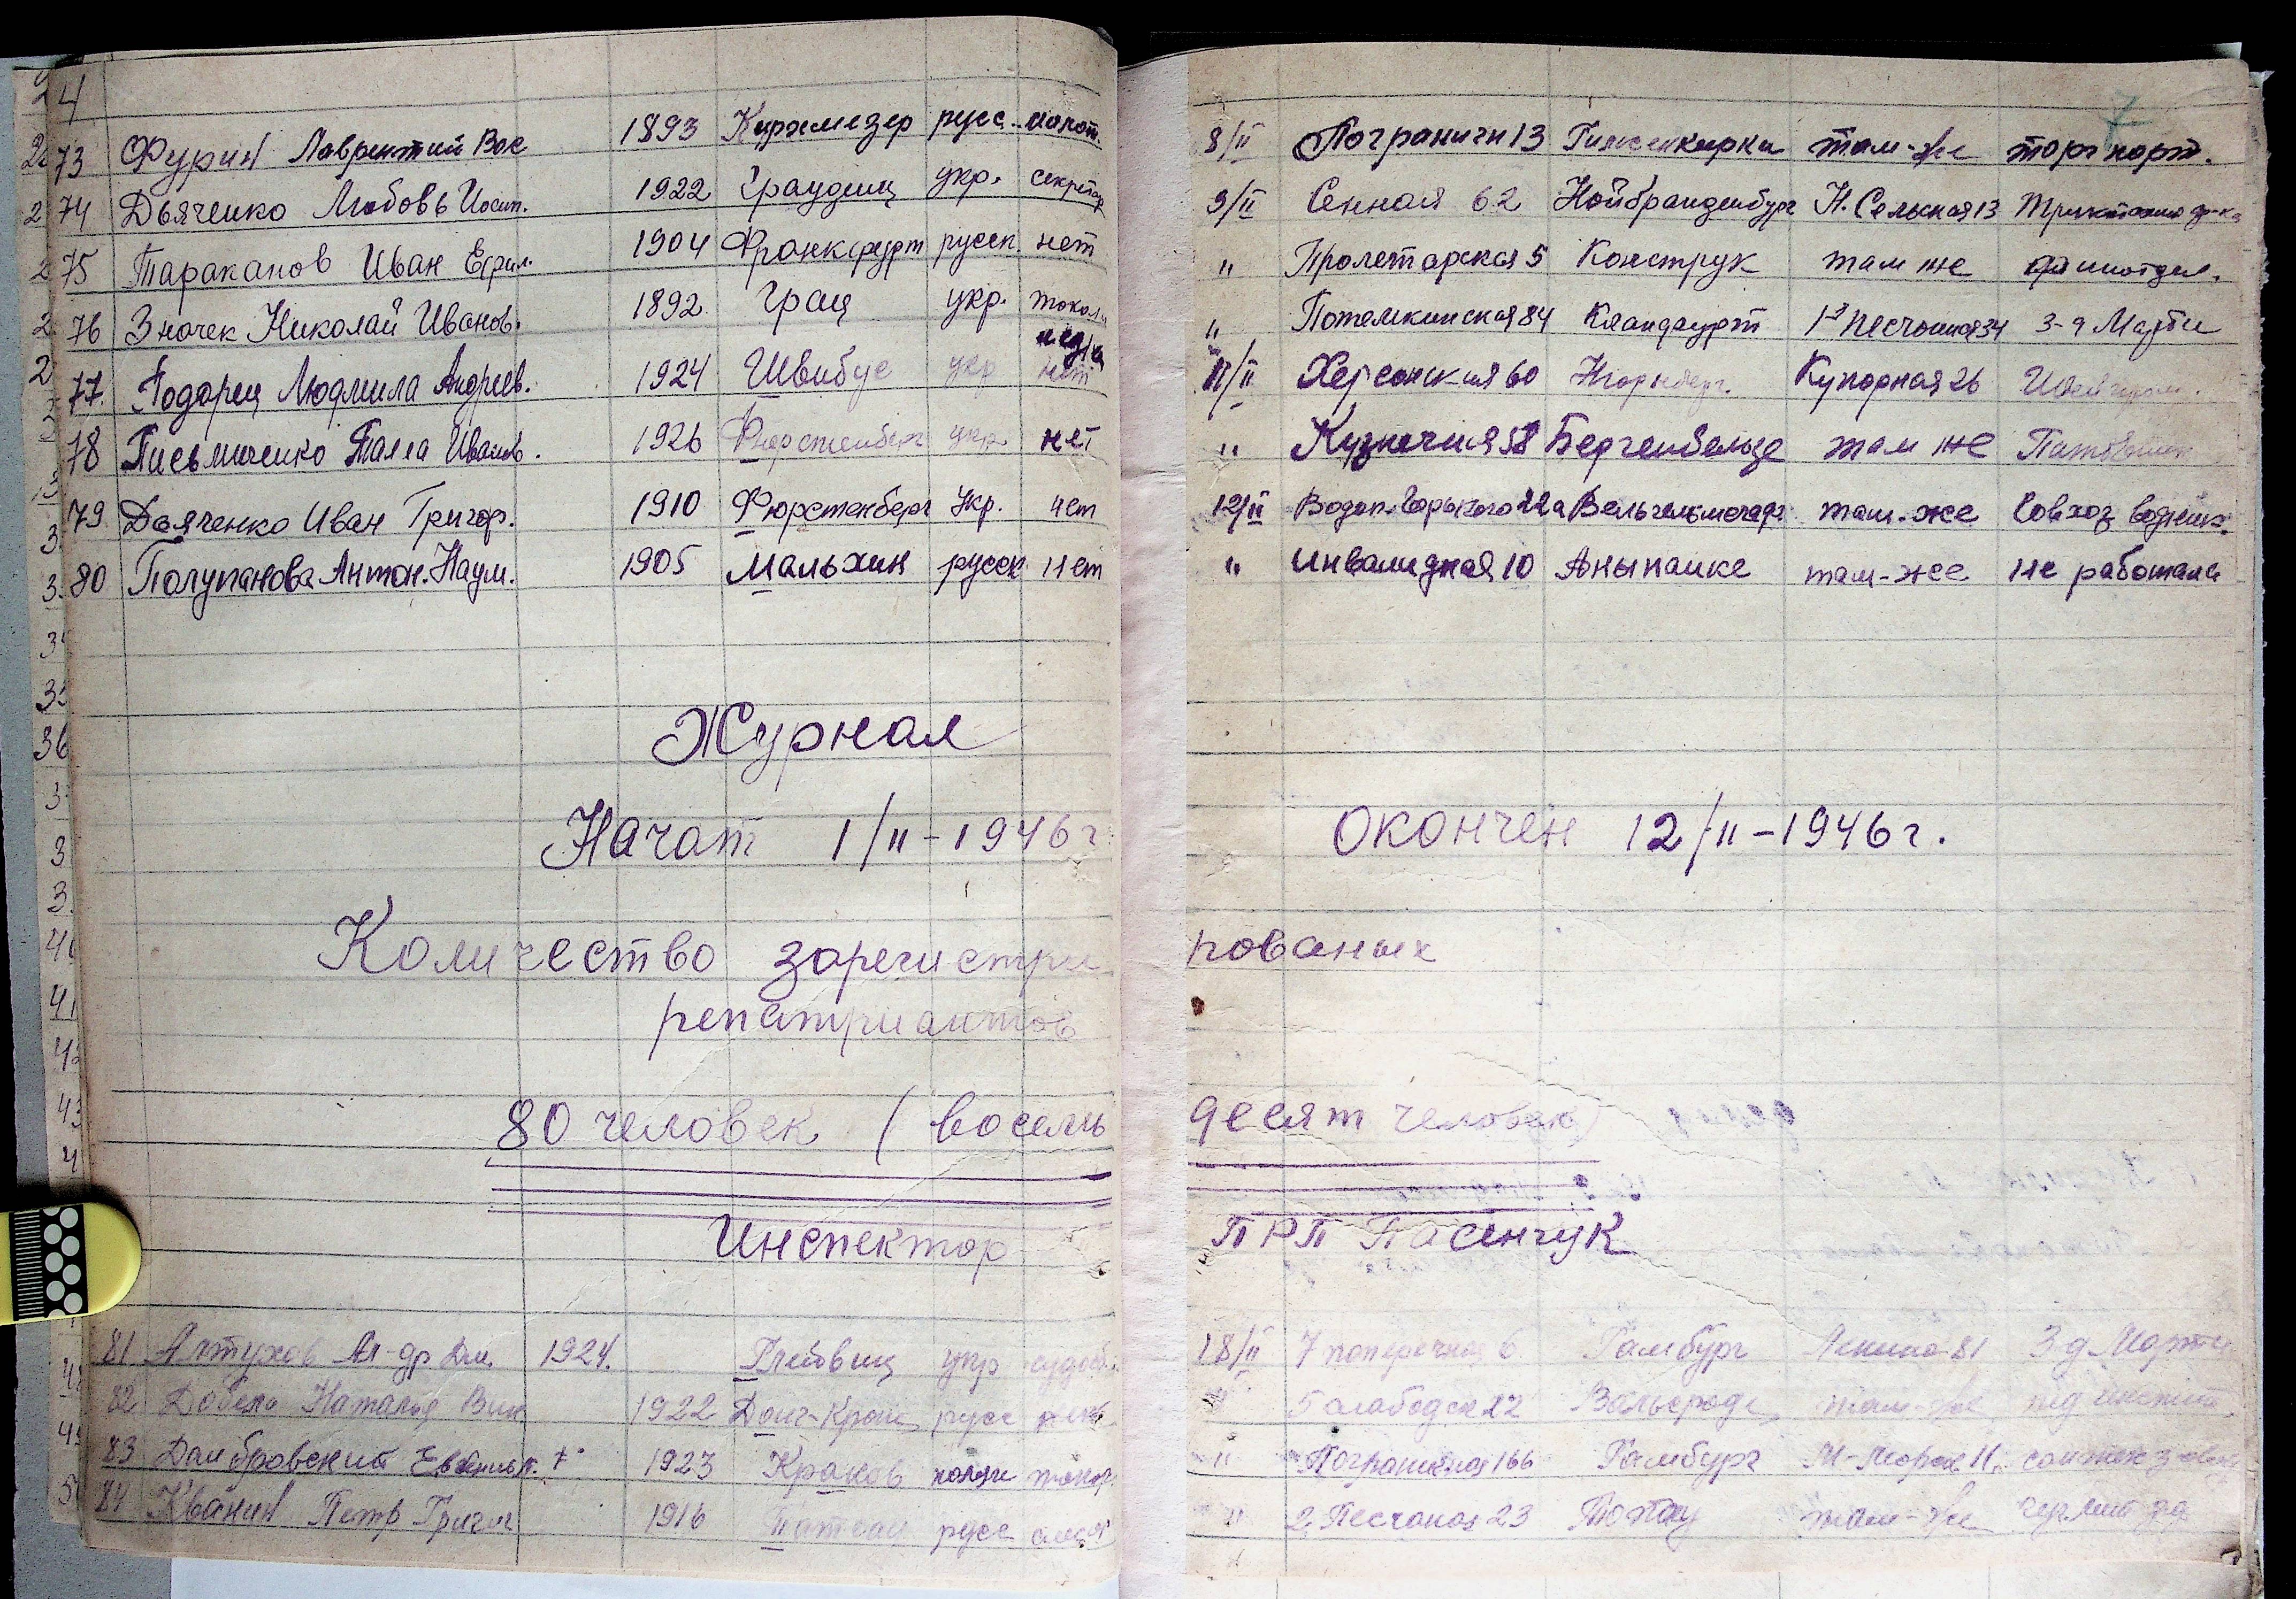 4
7
73 Фурин Лаврентий Вас 1893 Кирхмезер русс. 8/II Погранични 13 там-же торг порт.
74 Дьяченко Любовь Иосип. 1922 Граудени укр. секретар 9/II Сенная 62 Нойбранденбург Н. Сельская 13
75 Тараканов Иван Ефим. 1904 Франкфурт русск. нет " Пролетарская 5 Конструк там же
76 Значек Николай Иванов. 1892 Грац укр. " Потемкинская 84 Кландфурт 34 3-д Марти
77. Людмила Андреев. 1924 Швибус укр нет 11/II Херсонская 60 Нюрнберг. Купорная 26
78 Письменко Иванов. 1926 Фюрстенберг укр. нет " Кузнечная 58 там же
79 Дьяченко Иван Григор. 1910 Фюрстенберг Укр. нет 12/II Водоп. Горького 22а там-же Совхоз
80 Полупанова Антон. Наум. 1905 Мальхин русск нет " Инвалидная 10 Аныпаике там-же не работала
Журнал
Начат 1/II-1946г окончен 12/II-1946г.
Количество зарегистри рованых
репатриантов
80 человек (восемь десят человек)
Инспектор ПРП Пасенчук
81 Алтухов Ал-др Дм. 1924. Глейвиц укр 18/II 7 поперечная 6 Гамбург Ленина 81 З-д Марти
82 Наталья Вик 1922 русс " 5 слабодск 22 Вальсроде там-же
83 Дамбровский Евгений 1923 Краков поляк токар. " Пограничная 166 Гамбург
84 Кванин Петр Григор 1916 русс " 2 Песчаная 23 там-же